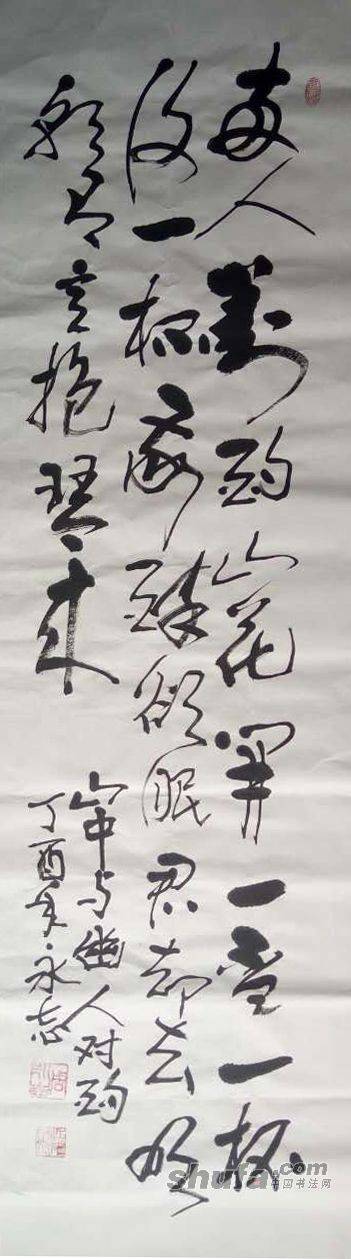 两人对酌山花开一壶一杯
复一杯我醉欲眠君却去明
朝有意抱琴来
山中与幽人对酌
丁酉年永志
shufa.com
中国书法网